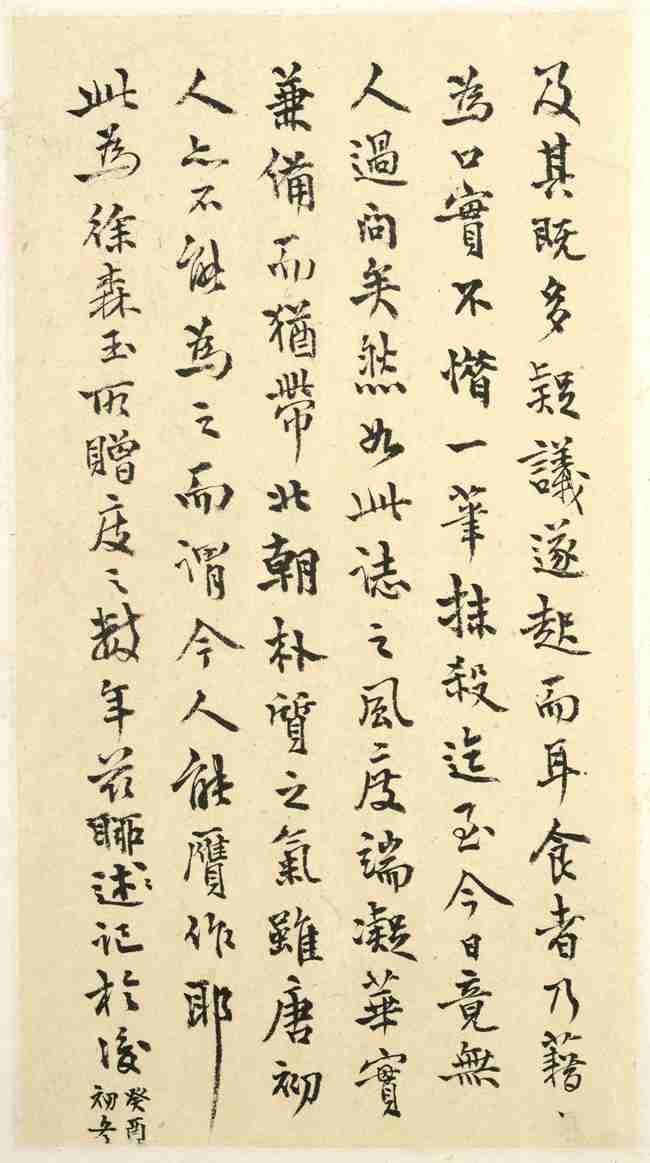 及其既多疑議遂起而耳食者乃藉、
為口實不惜一筆抹殺迄至今日竟無
人過問矣然如此誌之風度端凝華實
兼備而猶帶北朝朴質之氣雖唐初
人亦不能為之而謂今人能贗作耶
此為徐森玉所贈度之數年茲聊述記於後
癸酉
初冬